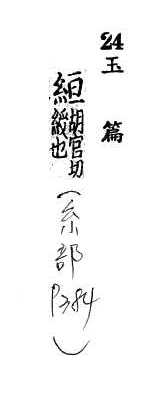 24
玉篇
絙胡官切
緩也
(糸部
P384)